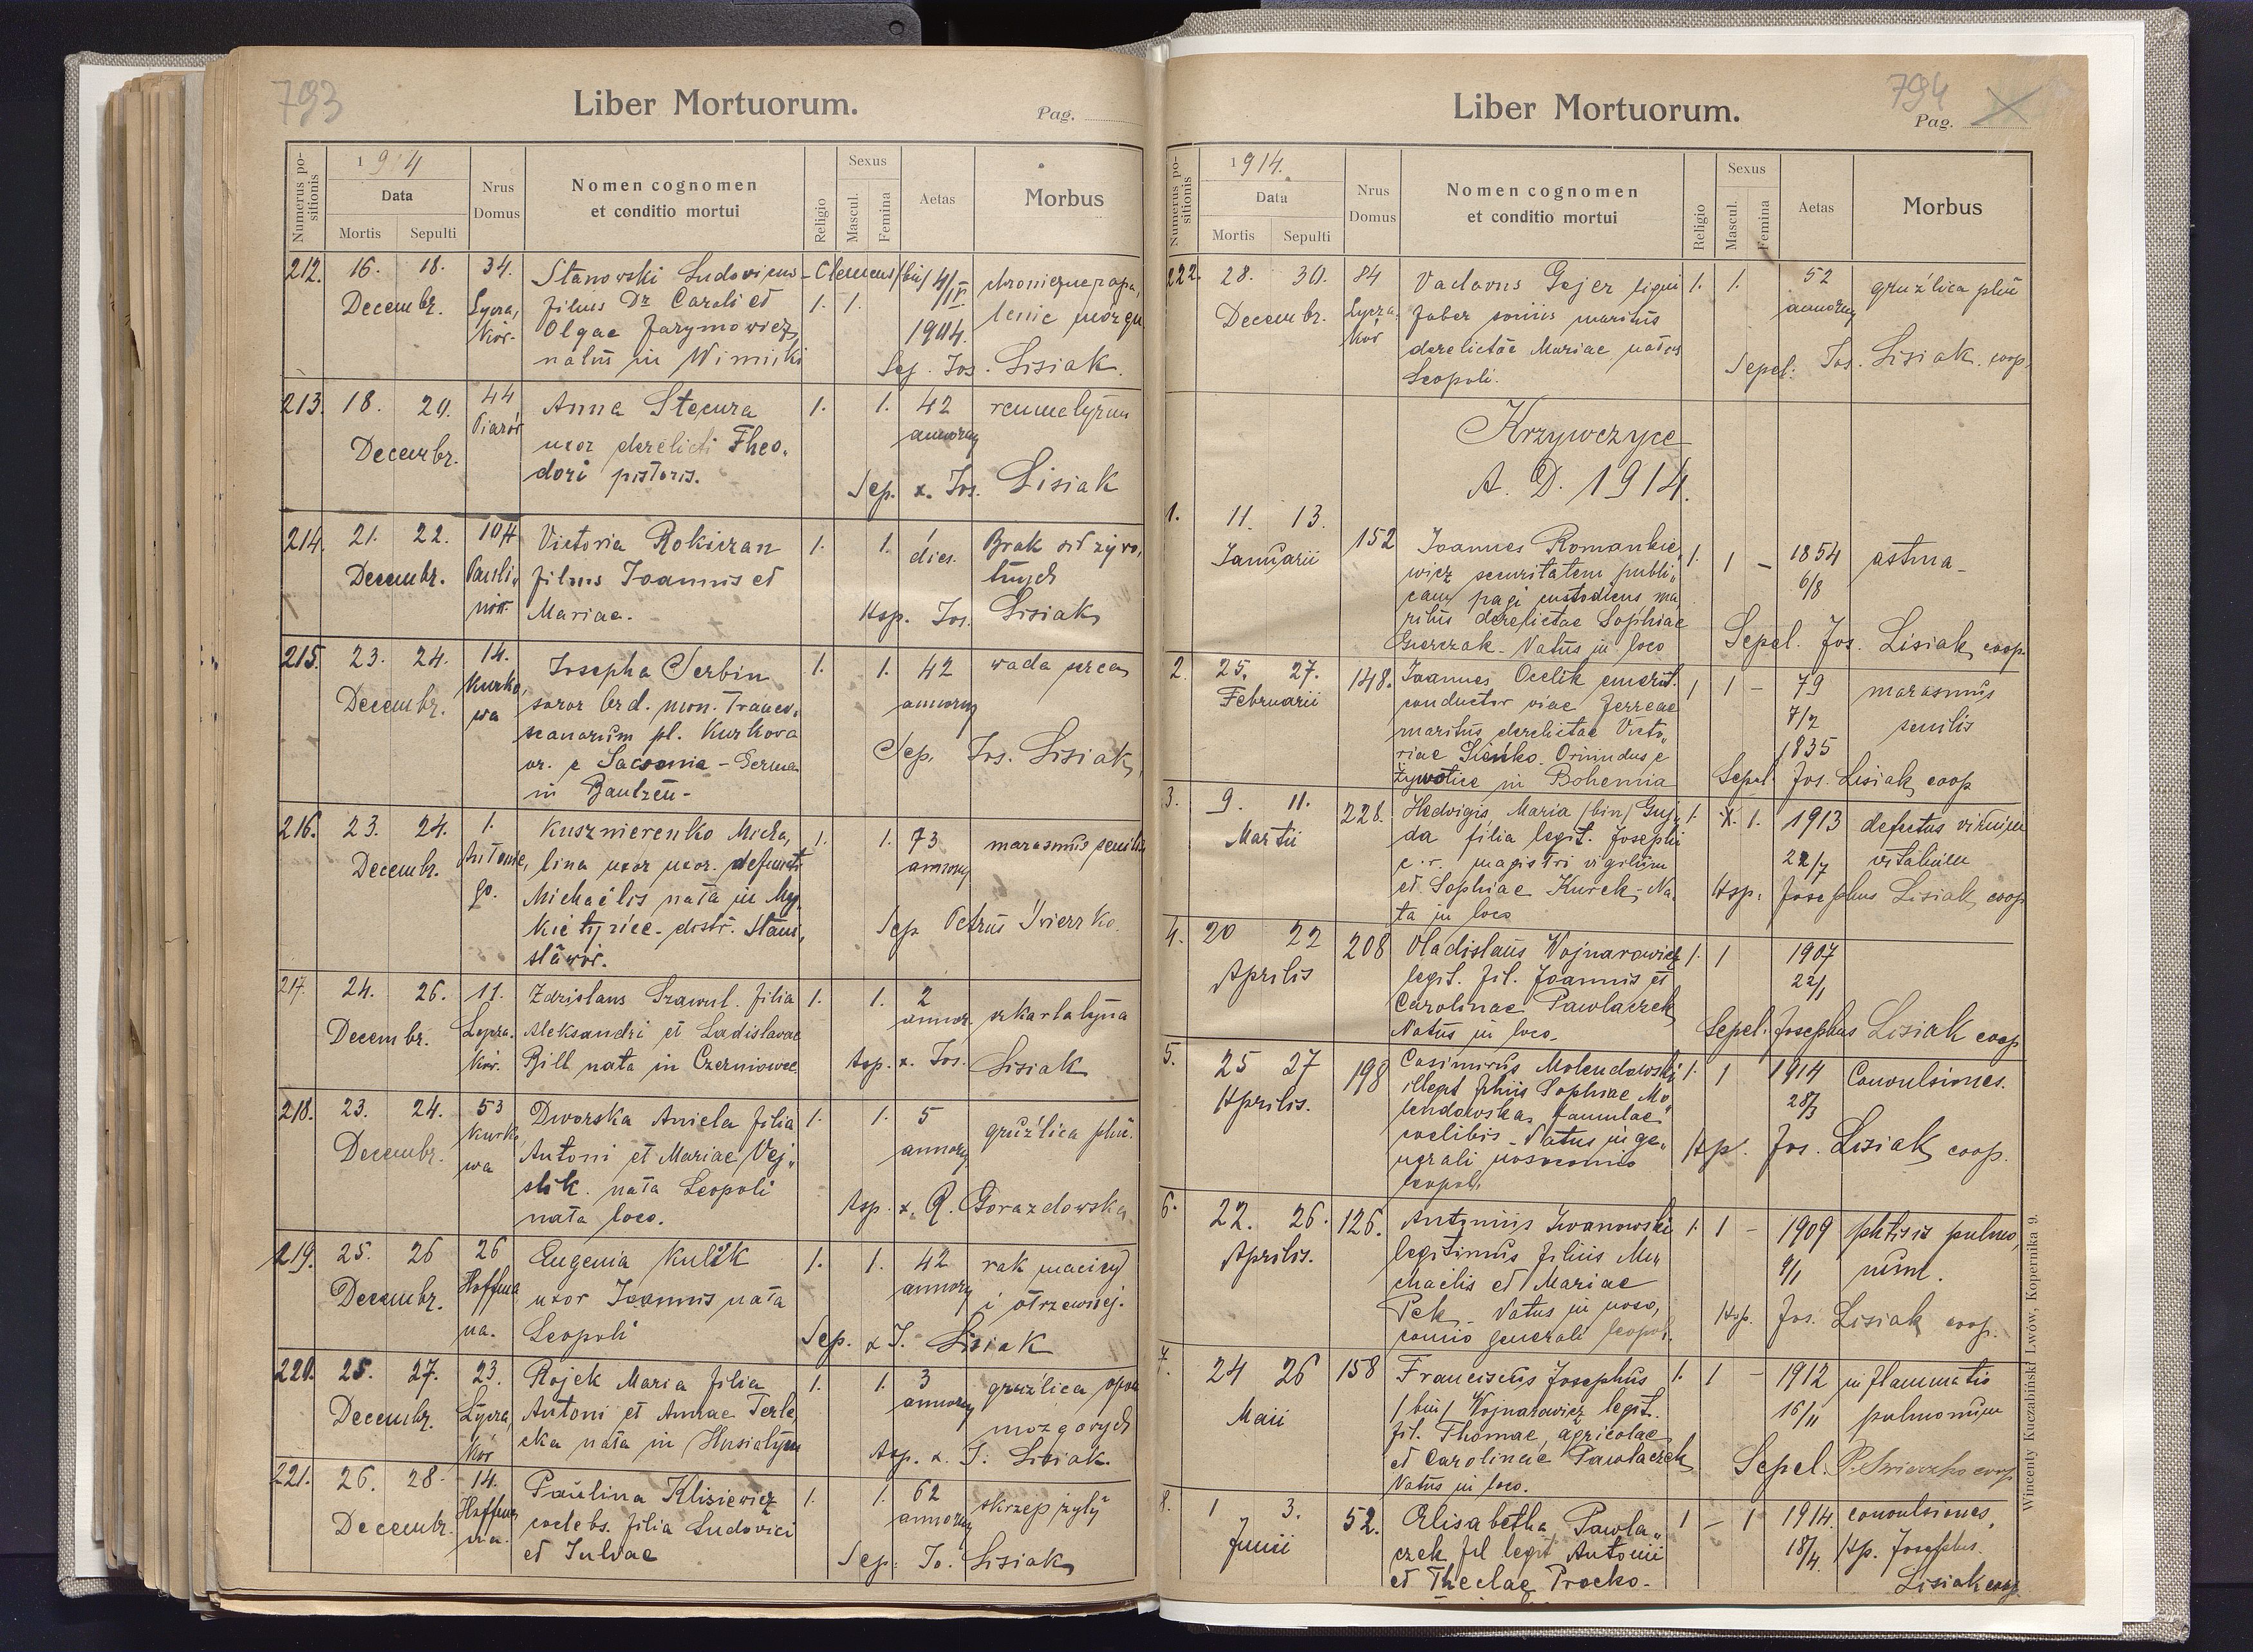 793
Liber Mortuorum.
Pag.
Numerus positionis
1914
Data
Mortis Sepulti
Nrus Domus
Nomen cognomen
et conditio mortui
Religio
Sexus
Mascul. Femina
Aetas
Morbus
212. 16. 18. 34. Stanowski Ludovicus-Clemens/bin/ 4/IV
Decembr. filius Dr Caroli et 1. 1.
Olgae Jarymowicz, 1904.
natus in Winniki Sep. Jos. Lisiak.
213. 18. 20. 44 Anna Stecura 1. 1. 42
Decembr. uxor derelicti Theo„ annorum
dori pistoris.
Sep. x. Jos. Lisiak
214. 21. 22. 104 Victoria Rokiczan 1. 1. 1 Brak sił żywo„
Decembr. Pauli„ filius Joannis et dies. tnych
Mariae. Asp. Jos. Lisiak
215. 23. 24. 14. Josepha Serbin 1. 1. 42 wada serca
Decembr. Kurko„ annorum
wa
pl. Kurkowa
or. e Saxonia - Germa
in Bautzen - Sep. Jos. Lisiak
216. 23. 24. 1. Kusznierenko Micha„ 1. 1. 73 marasmus senilis
Decembr. Antonie„ lina uxor uxor. defuncti annorum
go. Michaëlis nata in My„
kietyńce. distr. Stani„ Sep Petrus Świerzko.
sławów.
217. 24. 26. 11. Zdzislaus Szawul. filia 1. 1. 2 szkarlatyna
Decembr. Łycza„ Aleksandri et Ladislavae annor.
kow. Bill nata in Czerniowce Asp. x. Jos. Lisiak
218. 23. 24. 53 Dworska Aniela filia 1. 1. 5 gruźlica płuc.
Decembr. Kurko Antoni et Mariae Vej„ annorum
wa nata Leopoli
nata loco. Asp. x. Gorazdowski
219. 25. 26 26 Eugenia Kulik 1. 1. 42 rak macicy
Decembr. Hoffma uxor Joannis nata annorum i otrzewnej.
na. Leopoli Sep. x J. Lisiak
220. 25. 27. 23. Rojek Maria filia 1. 1. 3 gruźlica opon
Decembr. Łycza„ Antoni et Annae Terle„ annorum mozgowych
kow cka nata in Husiatyn Asp. x. J. Lisiak.
221. 26. 28. 14. Paulina Klisiewicz 1. 1. 62 skrzep żyły
Decembr. Hoffma coelebs. filia Ludovici annorum
na. et Julvae Sep. Jo. Lisiak
794
Liber Mortuorum.
Pag.
Numerus positionis
1914.
Data
Mortis Sepulti
Nrus Domus
Nomen cognomen
et conditio mortui
Religio
Sexus
Mascul. Femina
Aetas
Morbus
222. 28. 30. 84 Vaclavus Gejer ligni 1. 1. 52 gruźlica płuc
Decembr. Łycza„ faber maritus annorum
kow derelictae Mariae natus
Leopoli. Sepel: Jos. Lisiak. coop.
Krzywczyce
A. D. 1914.
1. 11. 13. 152 Joannes Romankie„ 1. 1 - 1854 astma -
Januarii wicz securitatem publi„ 6/8
cam pagi custodiens ma
ritus derelictae Sophiae
Natus in loco Sepel. Jos. Lisiak coop.
2. 25. 27. 148. Joannes Ocelik emerit. 1 1 - 79 marasmus
Februarii conductor viae ferreae 7/2 senilis
maritus derelictae Victo„ 1835
riae Sieńko. Oriundus e
Żywotice in Bohemia Sepel. Jos. Lisiak coop
3. 9. 11. 228. Hedvigis Maria /bin/ Guj„ 1. X. 1. 1913 defectus virium
Martii da filia legit. Josephi 22/7 vitalium
c. r. magistri vigilum
et Sophiae Kurek - Na„ Asp: Josephus Lisiak coop
ta in loco
4. 20 22 208 Vladislaus Wojnarowicz 1. 1 1907
Aprilis legit. fil. Joannis et 22/1
Carolinae Pawlaczek
Natus in loco. Sepel: Josephus Lisiak coop
5. 25 27 198 Casimirus Molendowski 1. 1 1914 Convulsiones.
Aprilis. illegit filius Sophiae Mo„ 28/3
lendowska, famulae
coelibis - Natus in ge„ Asp. Jos. Lisiak coop.
nerali nosocomio
leopol.
6. 22. 26. 126. Antonius Iwanowski 1. 1 - 1909 phtisis pulmo„
Aprilis. legitimus filius Mi„ 9/1 num.
chaelis et Mariae
Pek - Natus in noso„ Asp. Jos. Lisiak coop.
comio generali leopol.
7. 24 26 158 Franciscus Josephus 1. 1 - 1912 inflammatio
Maii /bin/ Wojnarowicz legit. 16/11 pulmonum
fil. Thomae, agricolae
et Carolinae Pawlaczek Sepel. P. Świerzko coop
Natus in loco.
8. 1 3. 52. Elisabetha Pawla„ 1 - 1 1914. convulsiones.
Junii czek fil legit Antonii 18/4 Asp. Josephus.
et Theclae Procko- Lisiak coop.
Wincenty Kuczabiński Lwów, Kopernika 9.